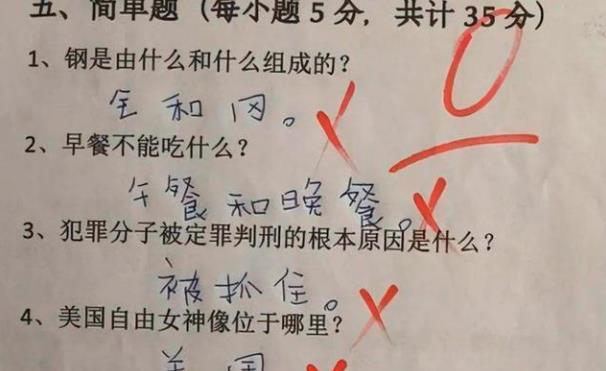 五、简单题（每小题 5 分，共计 35 分）
0
1、钢是由什么和什么组成的？
钅和冈。
2、早餐不能吃什么？
午餐和晚餐。
3、犯罪分子被定罪判刑的根本原因是什么？
被抓住。
4、美国自由女神像位于哪里？
美国